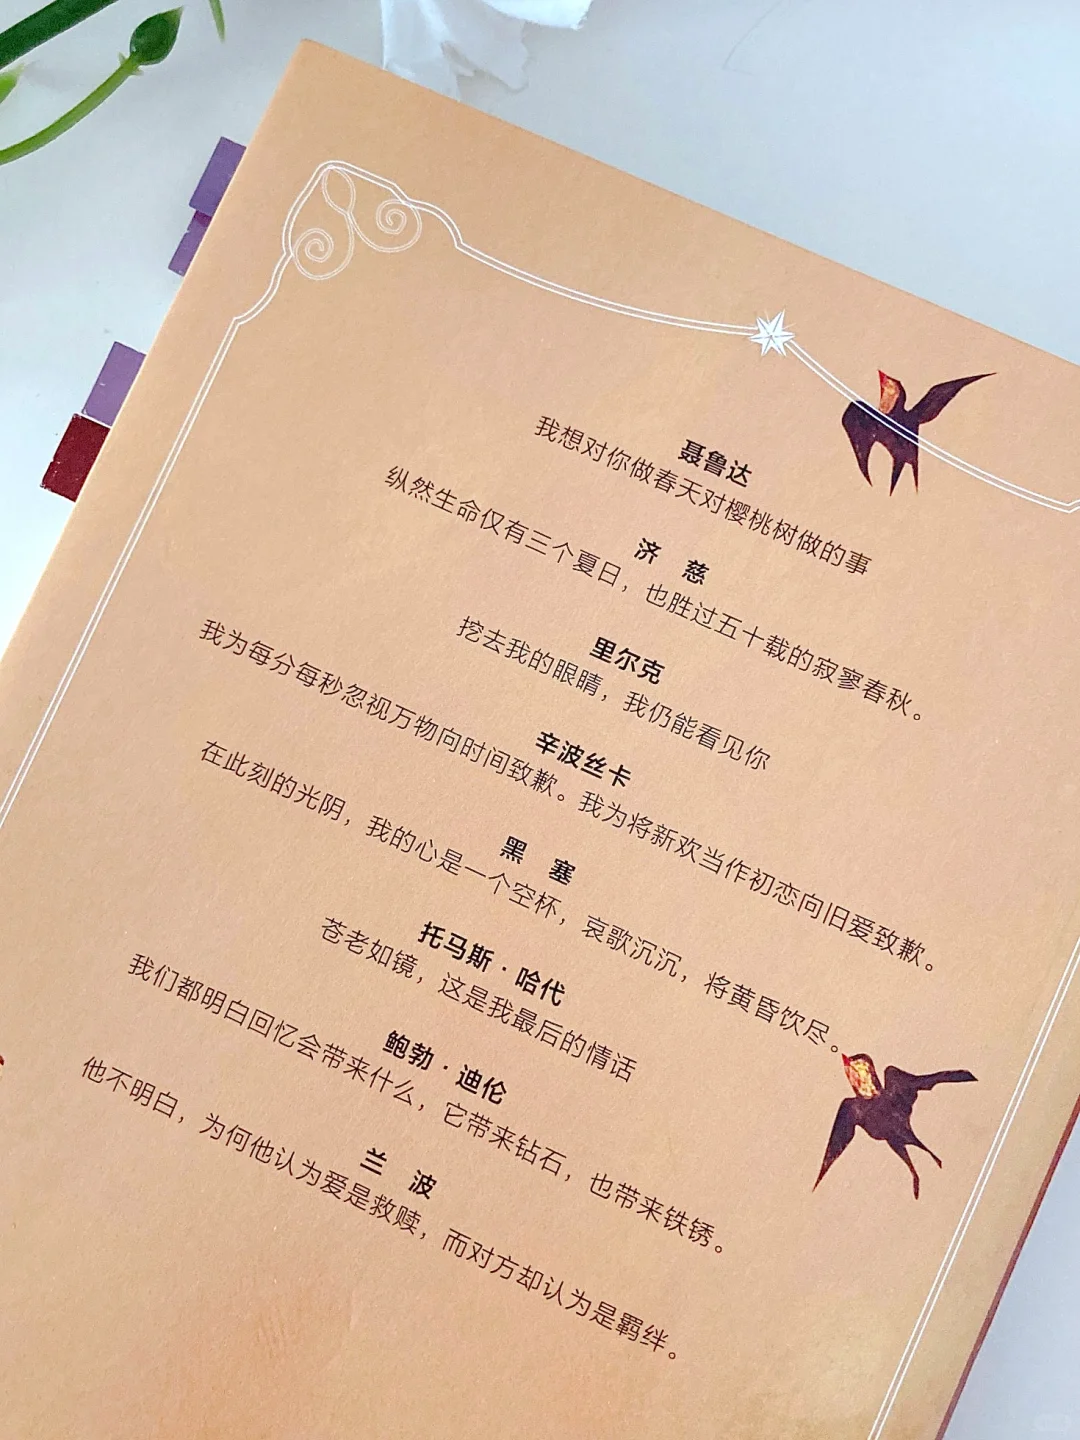 聂鲁达
我想对你做春天对樱桃树做的事
济 慈
纵然生命仅有三个夏日，也胜过五十载的寂寥春秋。
里尔克
挖去我的眼睛，我仍能看见你
辛波丝卡
我为每分每秒忽视万物向时间致歉。我为将新欢当作初恋向旧爱致歉。
黑 塞
在此刻的光阴，我的心是一个空杯，哀歌沉沉，将黄昏饮尽。
托马斯·哈代
苍老如镜，这是我最后的情话
鲍勃·迪伦
我们都明白回忆会带来什么，它带来钻石，也带来铁锈。
兰 波
他不明白，为何他认为爱是救赎，而对方却认为是羁绊。